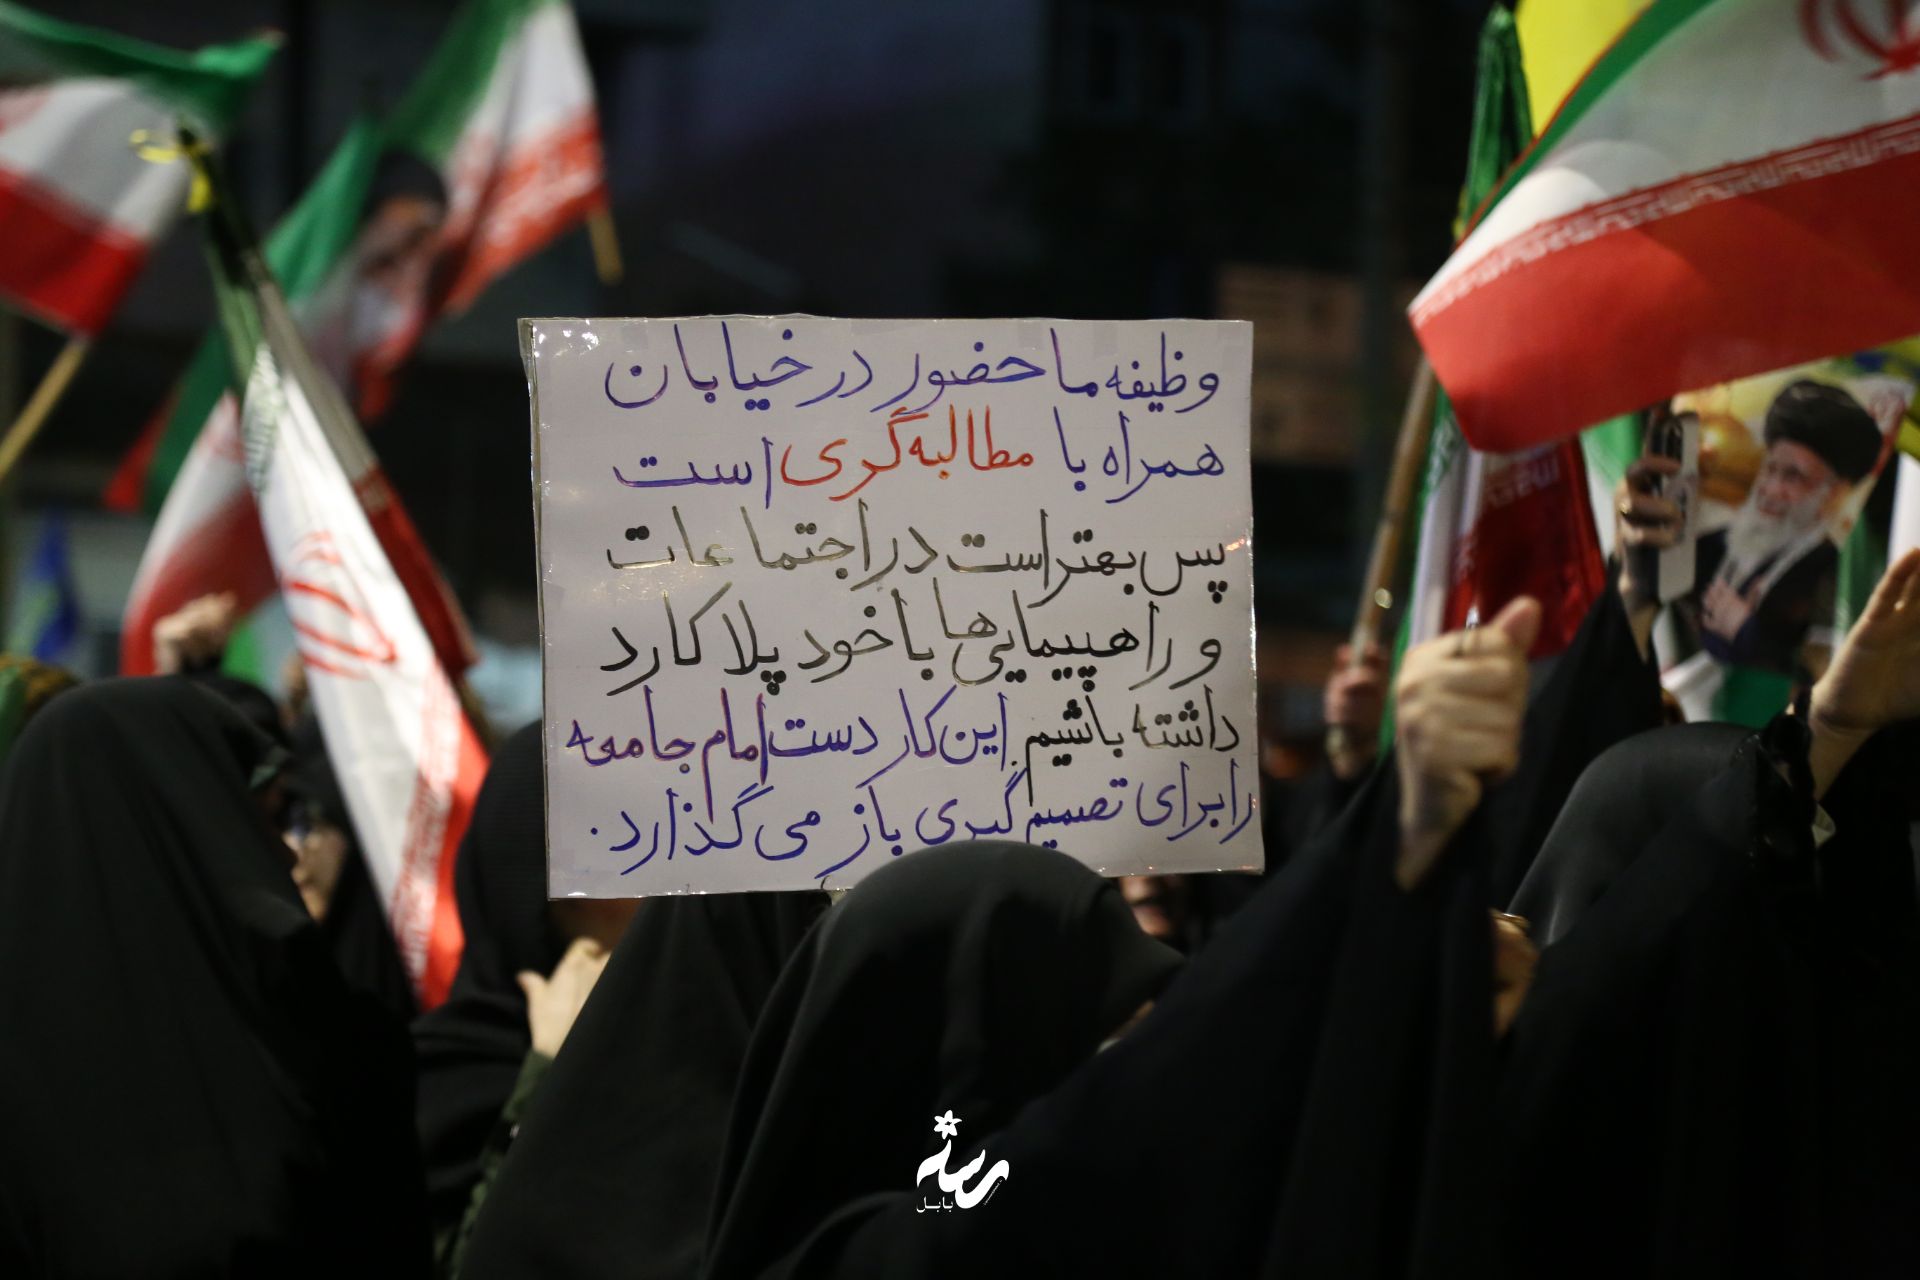 وظیفه ما حضور در خیابان
همراه با مطالبه‌گری است
پس بهتر است در اجتماعات
و راهپیمایی‌ها با خود پلاکارد
داشته باشیم. این کار دست امام جامعه
را برای تصمیم‌گیری باز می‌گذارد.
رسانه
بابل